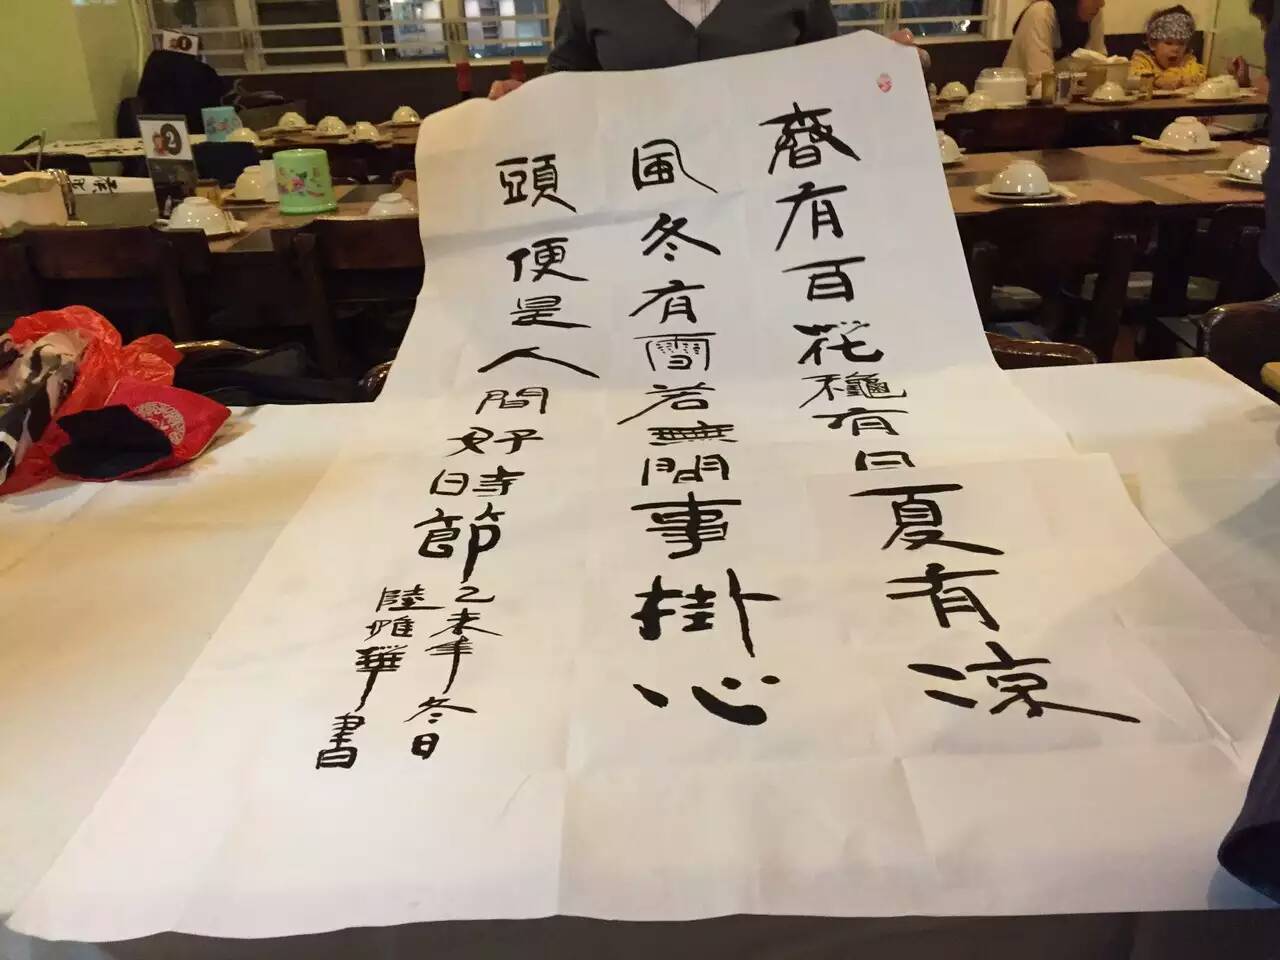 春有百花穐有月夏有涼
風冬有雪若無閒事掛心
頭便是人間好時節
乙未年冬日
陸雅華書
2